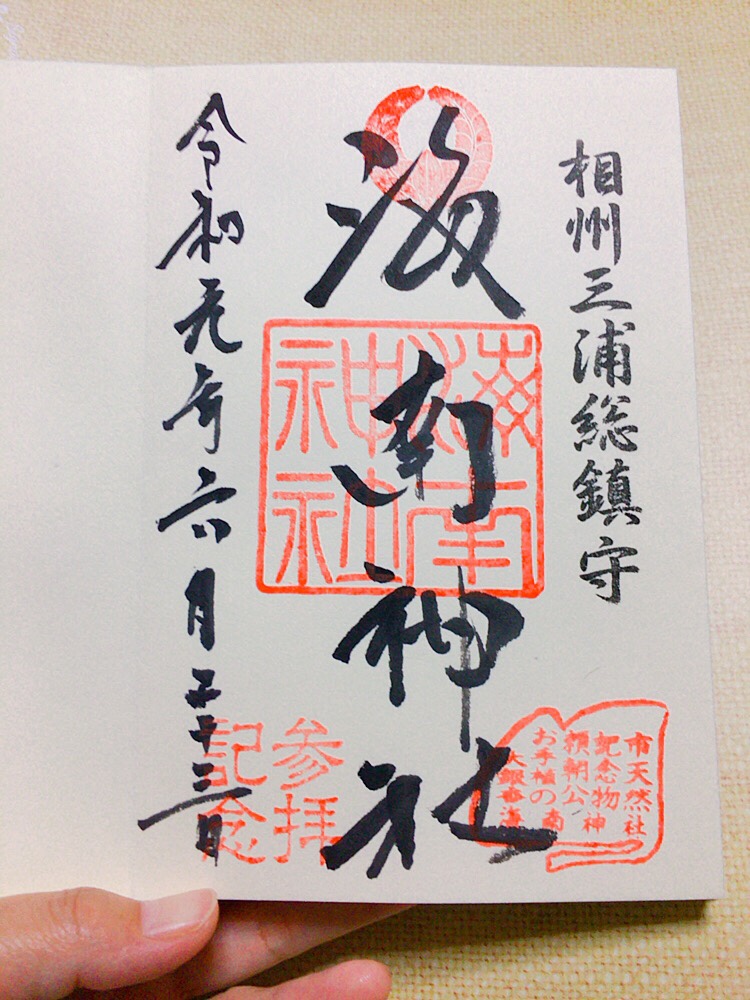 相州三浦総鎮守
海南神社
海南
神社
令和元年六月二十三日
参拝
記念
市天然
記念物
頼朝公
お手植の
大銀杏
海南神社